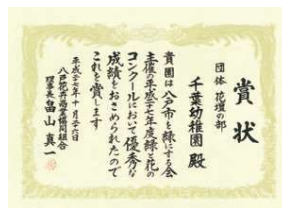 賞状
団体 花壇の部
千葉幼稚園 殿
貴園は八戸市を緑にする会
主催の平成二十七年度緑と花の
コンクールにおいて優秀な
成績をおさめられたので
これを賞します
平成二十七年十月二十六日
八戸花卉商業協同組合
理事長 畠山真一